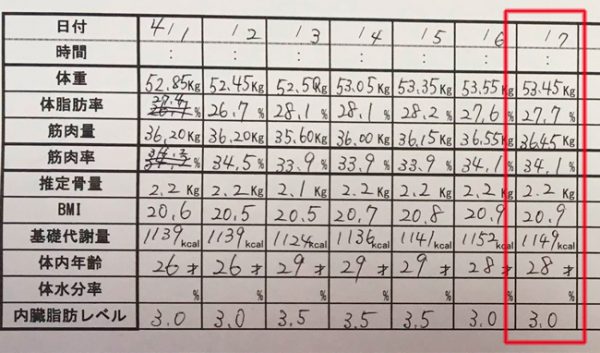 日付 4/1 /2 /3 /4 /5 /6 /7
時間 : : : : : : :
体重 52.85Kg 52.45Kg 52.50Kg 53.05Kg 53.35Kg 53.55Kg 53.45Kg
体脂肪率 % 26.7% 28.1% 28.1% 28.2% 27.6% 27.7%
筋肉量 36.20Kg 36.20Kg 35.60Kg 36.00Kg 36.15Kg 36.55Kg 36.45Kg
筋肉率 % 34.5% 33.9% 33.9% 33.9% 34.1% 34.1%
推定骨量 2.2Kg 2.2Kg 2.1Kg 2.2Kg 2.2Kg 2.2Kg 2.2Kg
BMI 20.6 20.5 20.5 20.7 20.8 20.9 20.9
基礎代謝量 1139kcal 1139kcal 1124kcal 1136kcal 1141kcal 1152kcal 1149kcal
体内年齢 26才 26才 29才 29才 29才 28才 28才
体水分率 % % % % % % %
内臓脂肪レベル 3.0 3.0 3.5 3.5 3.5 3.0 3.0